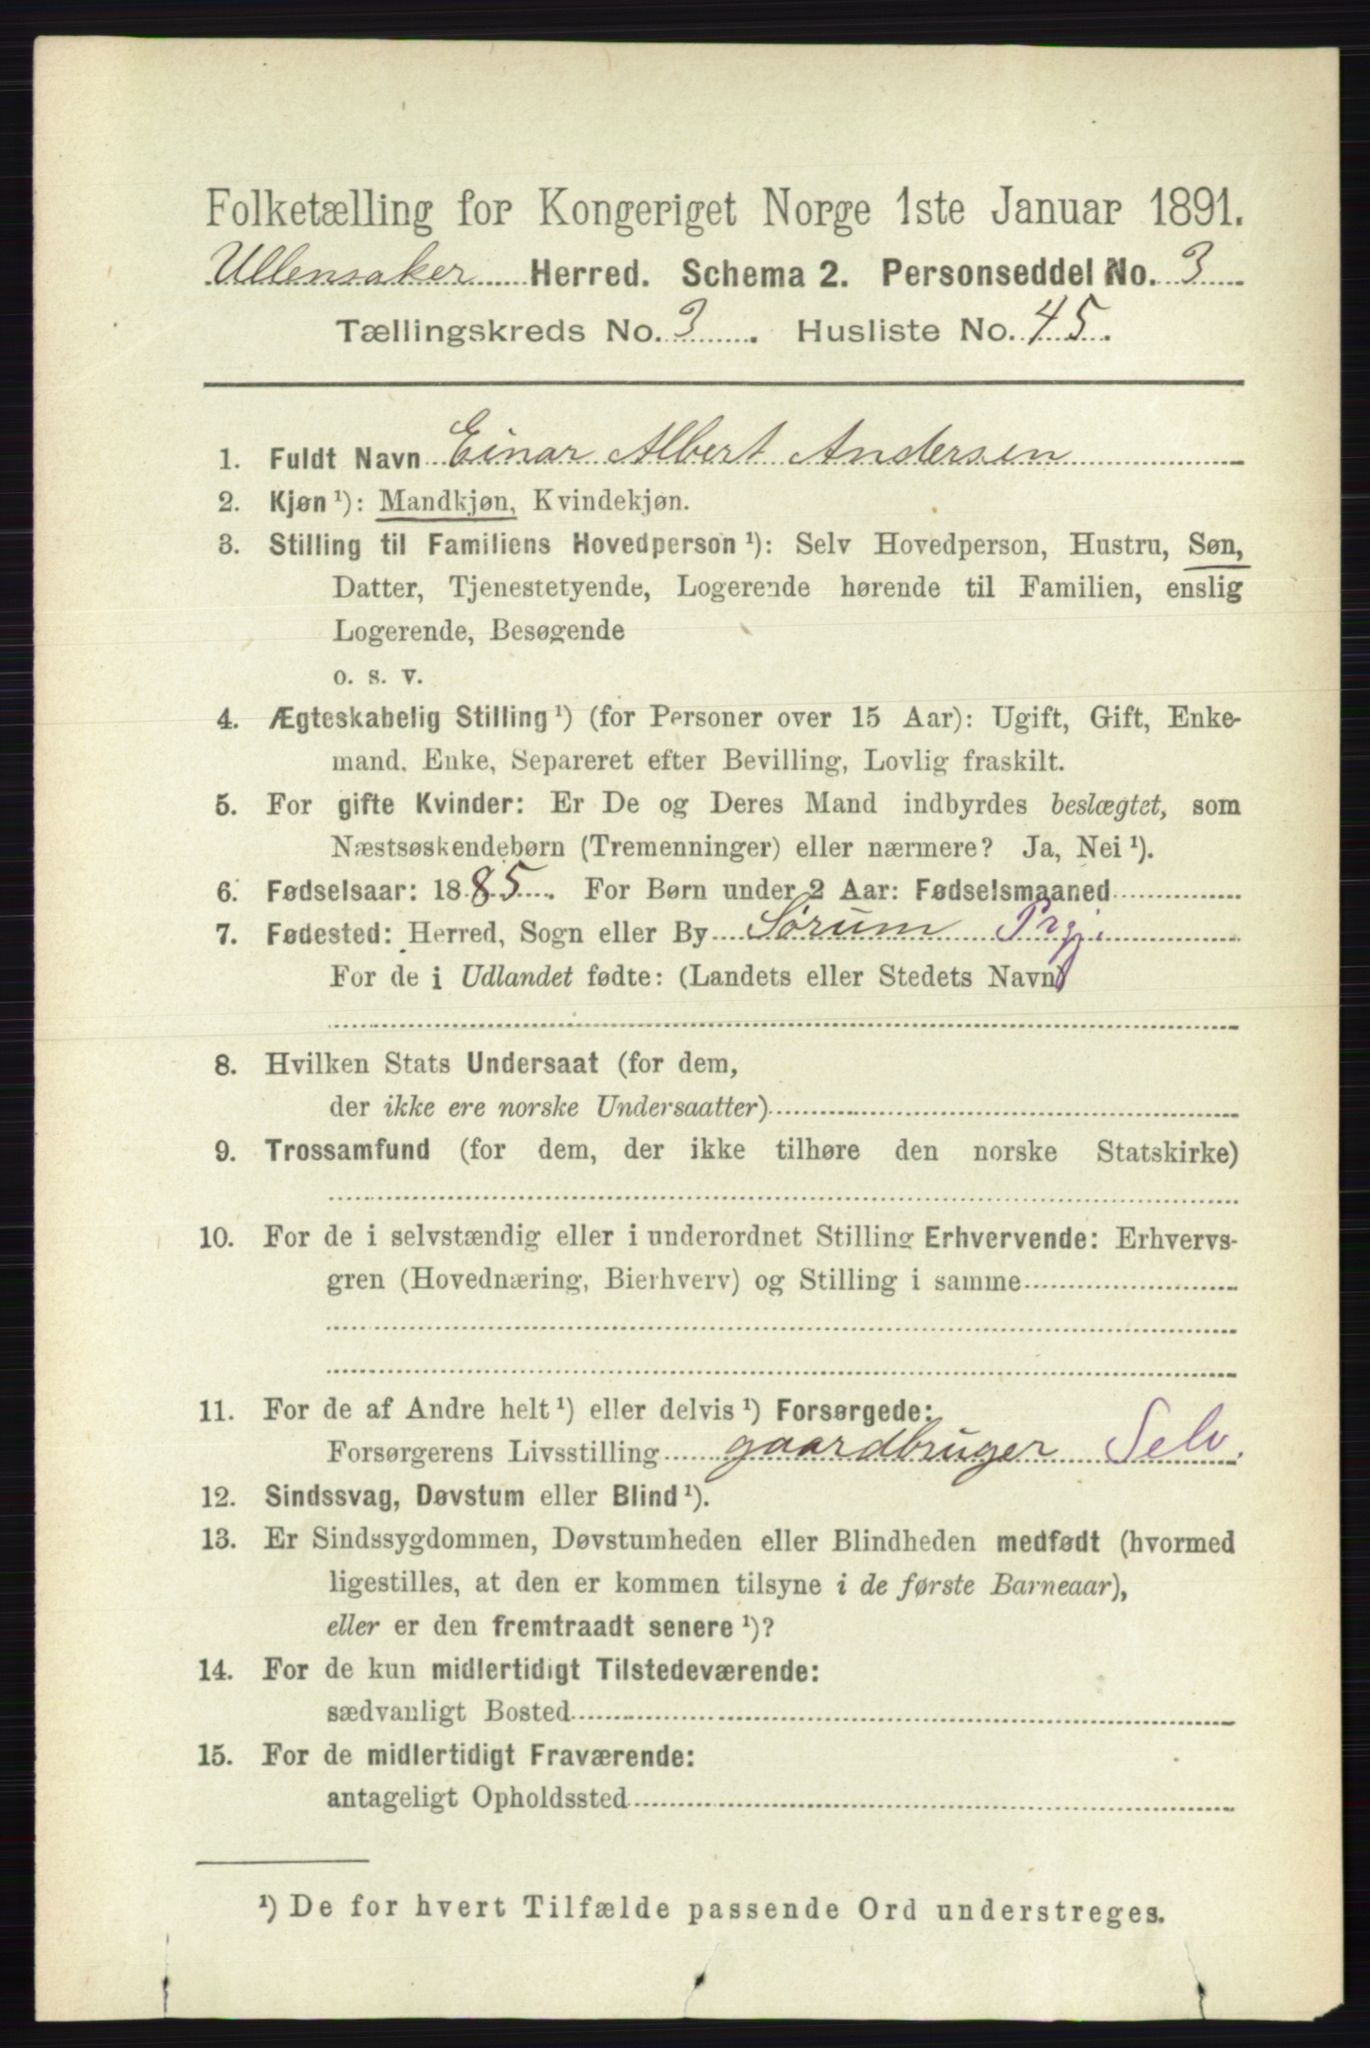 Folketælling for Kongeriget Norge 1ste Januar 1891.
Ullensaker Herred. Schema 2. Personseddel No. 3
Tællingskreds No. 3. Husliste No. 45.
1. Fuldt Navn Einar Albert Andersen
2. Kjøn ¹): Mandkjøn, Kvindekjøn.
3. Stilling til Familiens Hovedperson ¹): Selv Hovedperson, Hustru, Søn,
Datter, Tjenestetyende, Logerende hørende til Familien, enslig
Logerende, Besøgende
o. s. v.
4. Ægteskabelig Stilling ¹) (for Personer over 15 Aar): Ugift, Gift, Enke-
mand. Enke, Separeret efter Bevilling, Lovlig fraskilt.
5. For gifte Kvinder: Er De og Deres Mand indbyrdes beslægtet, som
Næstsøskendebørn (Tremenninger) eller nærmere? Ja, Nei ¹).
6. Fødselsaar: 1885. For Børn under 2 Aar: Fødselsmaaned
7. Fødested: Herred, Sogn eller By Sørum Prgj.
For de i Udlandet fødte: (Landets eller Stedets Navn)
8. Hvilken Stats Undersaat (for dem,
der ikke ere norske Undersaatter)
9. Trossamfund (for dem, der ikke tilhøre den norske Statskirke)
10. For de i selvstændig eller i underordnet Stilling Erhvervende: Erhvervs-
gren (Hovednæring, Bierhverv) og Stilling i samme
11. For de af Andre helt ¹) eller delvis ¹) Forsørgede:
Forsørgerens Livsstilling gaardbruger Selv.
12. Sindssvag, Døvstum eller Blind ¹).
13. Er Sindssygdommen, Døvstumheden eller Blindheden medfødt (hvormed
ligestilles, at den er kommen tilsyne i de første Barneaar),
eller er den fremtraadt senere ¹)?
14. For de kun midlertidigt Tilstedeværende:
sædvanligt Bosted
15. For de midlertidigt Fraværende:
antageligt Opholdssted
¹) De for hvert Tilfælde passende Ord understreges.